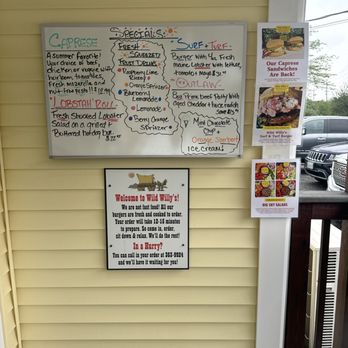 Specials:
Caprese
A summer favorite!
Your choice of beef,
chicken, or veggie with
heirloom, tomatoes,
fresh mozzarella and
nut-free pesto!
"Lobstah" Roll
Fresh Shucked Lobster
Salad on a Grilled +
Buttered Hotdog bun
Fresh
Squeezed
Fruit Drinks
Raspberry Lime
Rickey
Orange Spritzer
Blueberry
Lemonade
Lemonade
Berry Orange
Spritzer
Surf + Turf
Burger with fresh
Maine Lobster with lettuce,
tomato + mayo
Outlaw
8oz Prime beef Patty with
Aged Cheddar + bacon
Mint Chocolate
Chip
Orange Sherbert
Ice creams
Our Caprese
Sandwiches
Are Back!
Wild Willy's
Surf & Turf Burger
BIG SKY SALADS
Welcome to Wild Willy's!
We are not fast food! All our
burgers are fresh and cooked to order.
Your order will take 12-15 minutes
to prepare. So come in, order,
sit down & relax. We'll do the rest!
In a Hurry?
You can call in your order at 363-9924
and we'll have it waiting for you!